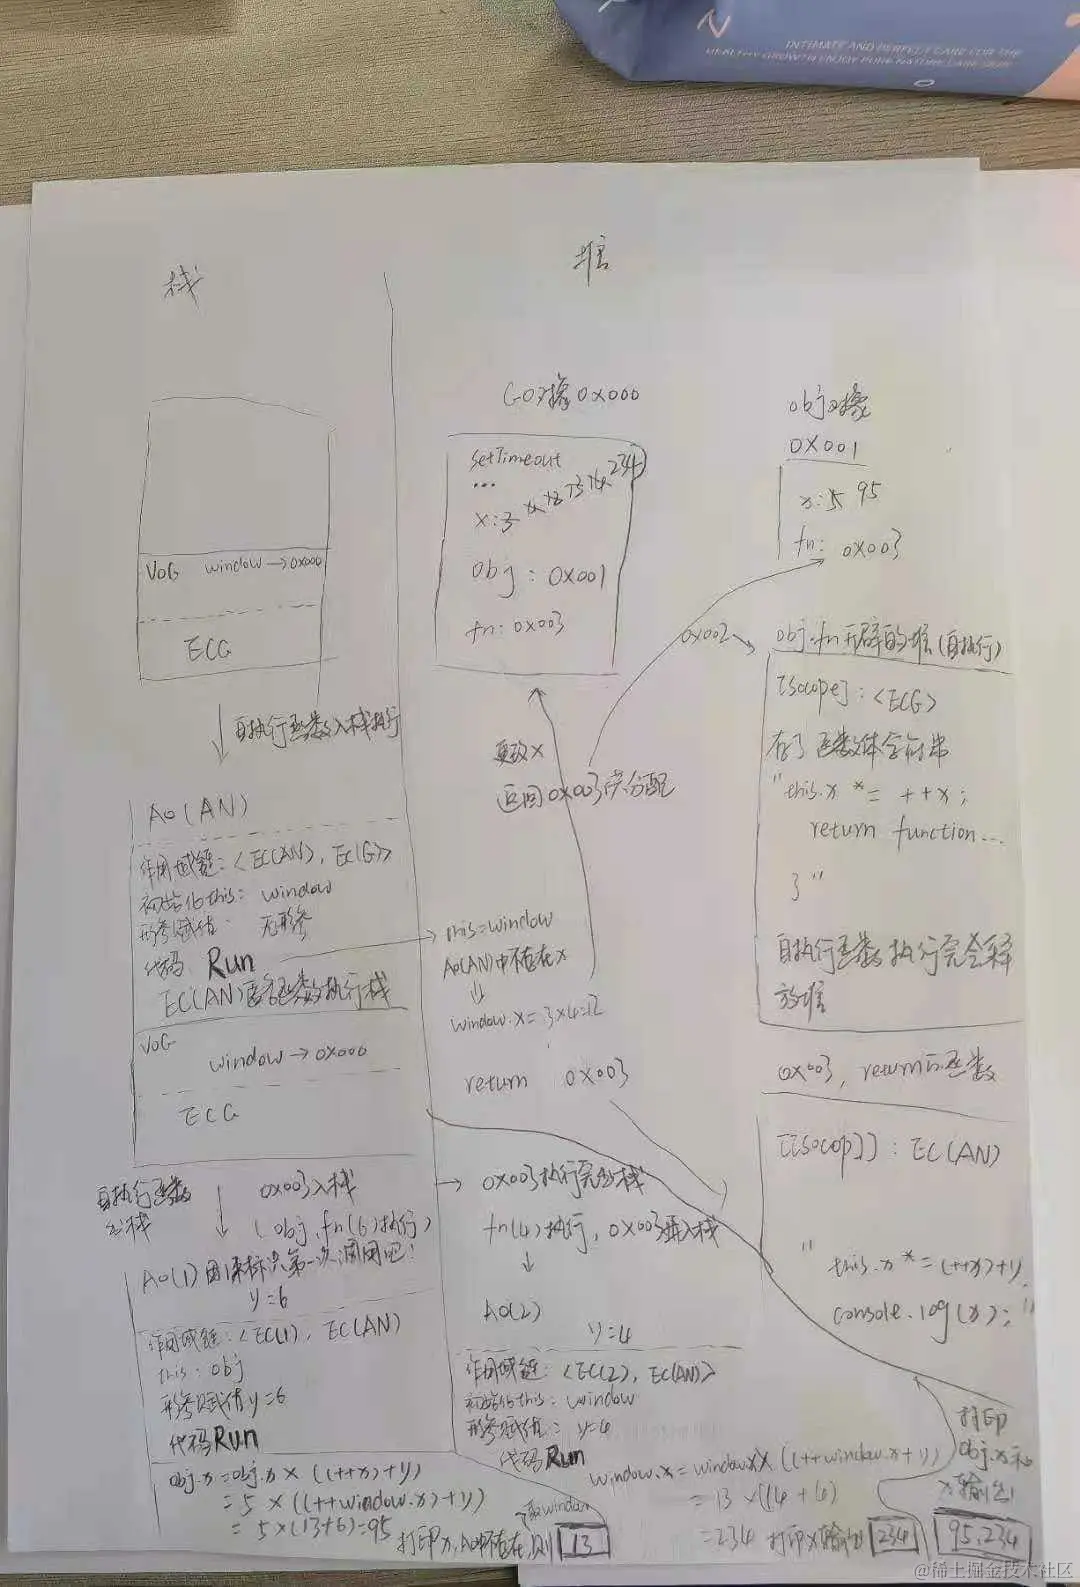 INTIMATE AND PERFECT CARE FOR THE
HEALTHY GROWTH ENJOY PURE NATURE CARE SKIN
栈
堆
GO对象0x000
setTimeout
...
x:3 4 12 13 14 234
obj : 0x001
fn: 0x003
obj对象
0X001
x:5 95
fn: 0x003
VOG window→0x000
ECG
自执行函数入栈执行
0x002
obj.fn开辟的堆(自执行)
[scope]:<ECG>
存了函数体字符串
"this.x *= ++x;
return function...
}"
自执行函数执行完会释
放堆
更改x
返回0x003并分配
AO(AN)
作用域链:<EC(AN), EC(G)>
初始化this: window
形参赋值: 无形参
代码 Run
EC(AN)匿名函数执行栈
this=window
AO(AN)中不存在x
window.x=3x4=12
return 0x003
VOG
window→0x000
ECG
0x003, return的函数
[[scop]]:EC(AN)
"this.x *=(++x)+y
console.log(x);"
自执行函数
出栈
0x003入栈
(obj.fn(6)执行)
AO(1)用1来标识第一次调用吧!
y=6
作用域链:<EC(1), EC(AN)
this: obj
形参赋值y=6
代码Run
obj.x=obj.x x ((++x)+y)
=5 x((++window.x)+y)
=5x(13+6)=95
打印x,AO中不存在,则取window 13
0x003执行完出栈
fn(4)执行, 0x003再入栈
AO(2)
y=4
作用域链: <EC(2), EC(AN)>
初始化this: window
形参赋值: y=4
代码Run
window.x=window.x x ((++window.x+y)
=13 x(14+4)
=234 打印x输出 234
打印
obj.x和
x输出
95,234
@稀土掘金技术社区